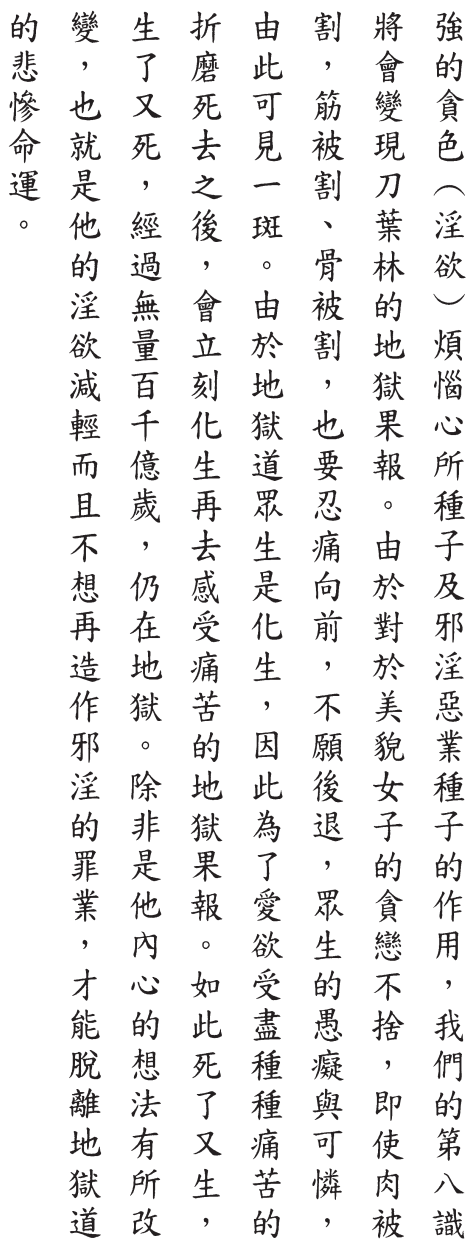 強的貪色（淫欲）煩惱心所種子及邪淫惡業種子的作用，我們的第八識
將會變現刀葉林的地獄果報。由於對於美貌女子的貪戀不捨，即使肉被
割，筋被割、骨被割，也要忍痛向前，不願後退，眾生的愚癡與可憐，
由此可見一斑。由於地獄道眾生是化生，因此為了愛欲受盡種種痛苦的
折磨死去之後，會立刻化生再去感受痛苦的地獄果報。如此死了又生，
生了又死，經過無量百千億歲，仍在地獄。除非是他內心的想法有所改
變，也就是他的淫欲減輕而且不想再造作邪淫的罪業，才能脫離地獄道
的悲慘命運。